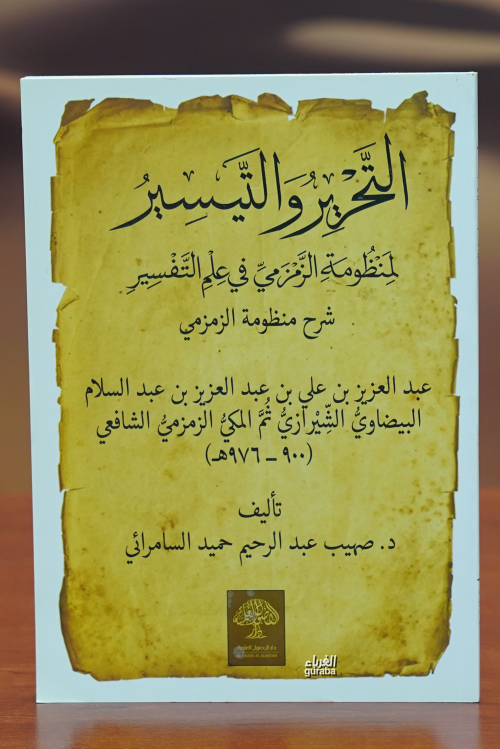 التَّحْرِيْرُ وَالتَّيْسِيرُ
لِمَنْظُومَةِ الزَّمْزَمِيِّ فِي عِلْمِ التَّفْسِيرِ
شرح منظومة الزمزمي
عبد العزيز بن علي بن عبد العزيز بن عبد السلام
البيضاويُّ الشِّيْرازيُّ ثُمَّ المكيُّ الزمزميُّ الشافعي
(٩٠٠ – ٩٧٦هـ)
تأليف
د. صهيب عبد الرحيم حميد السامرائي
الغرباء
guraba